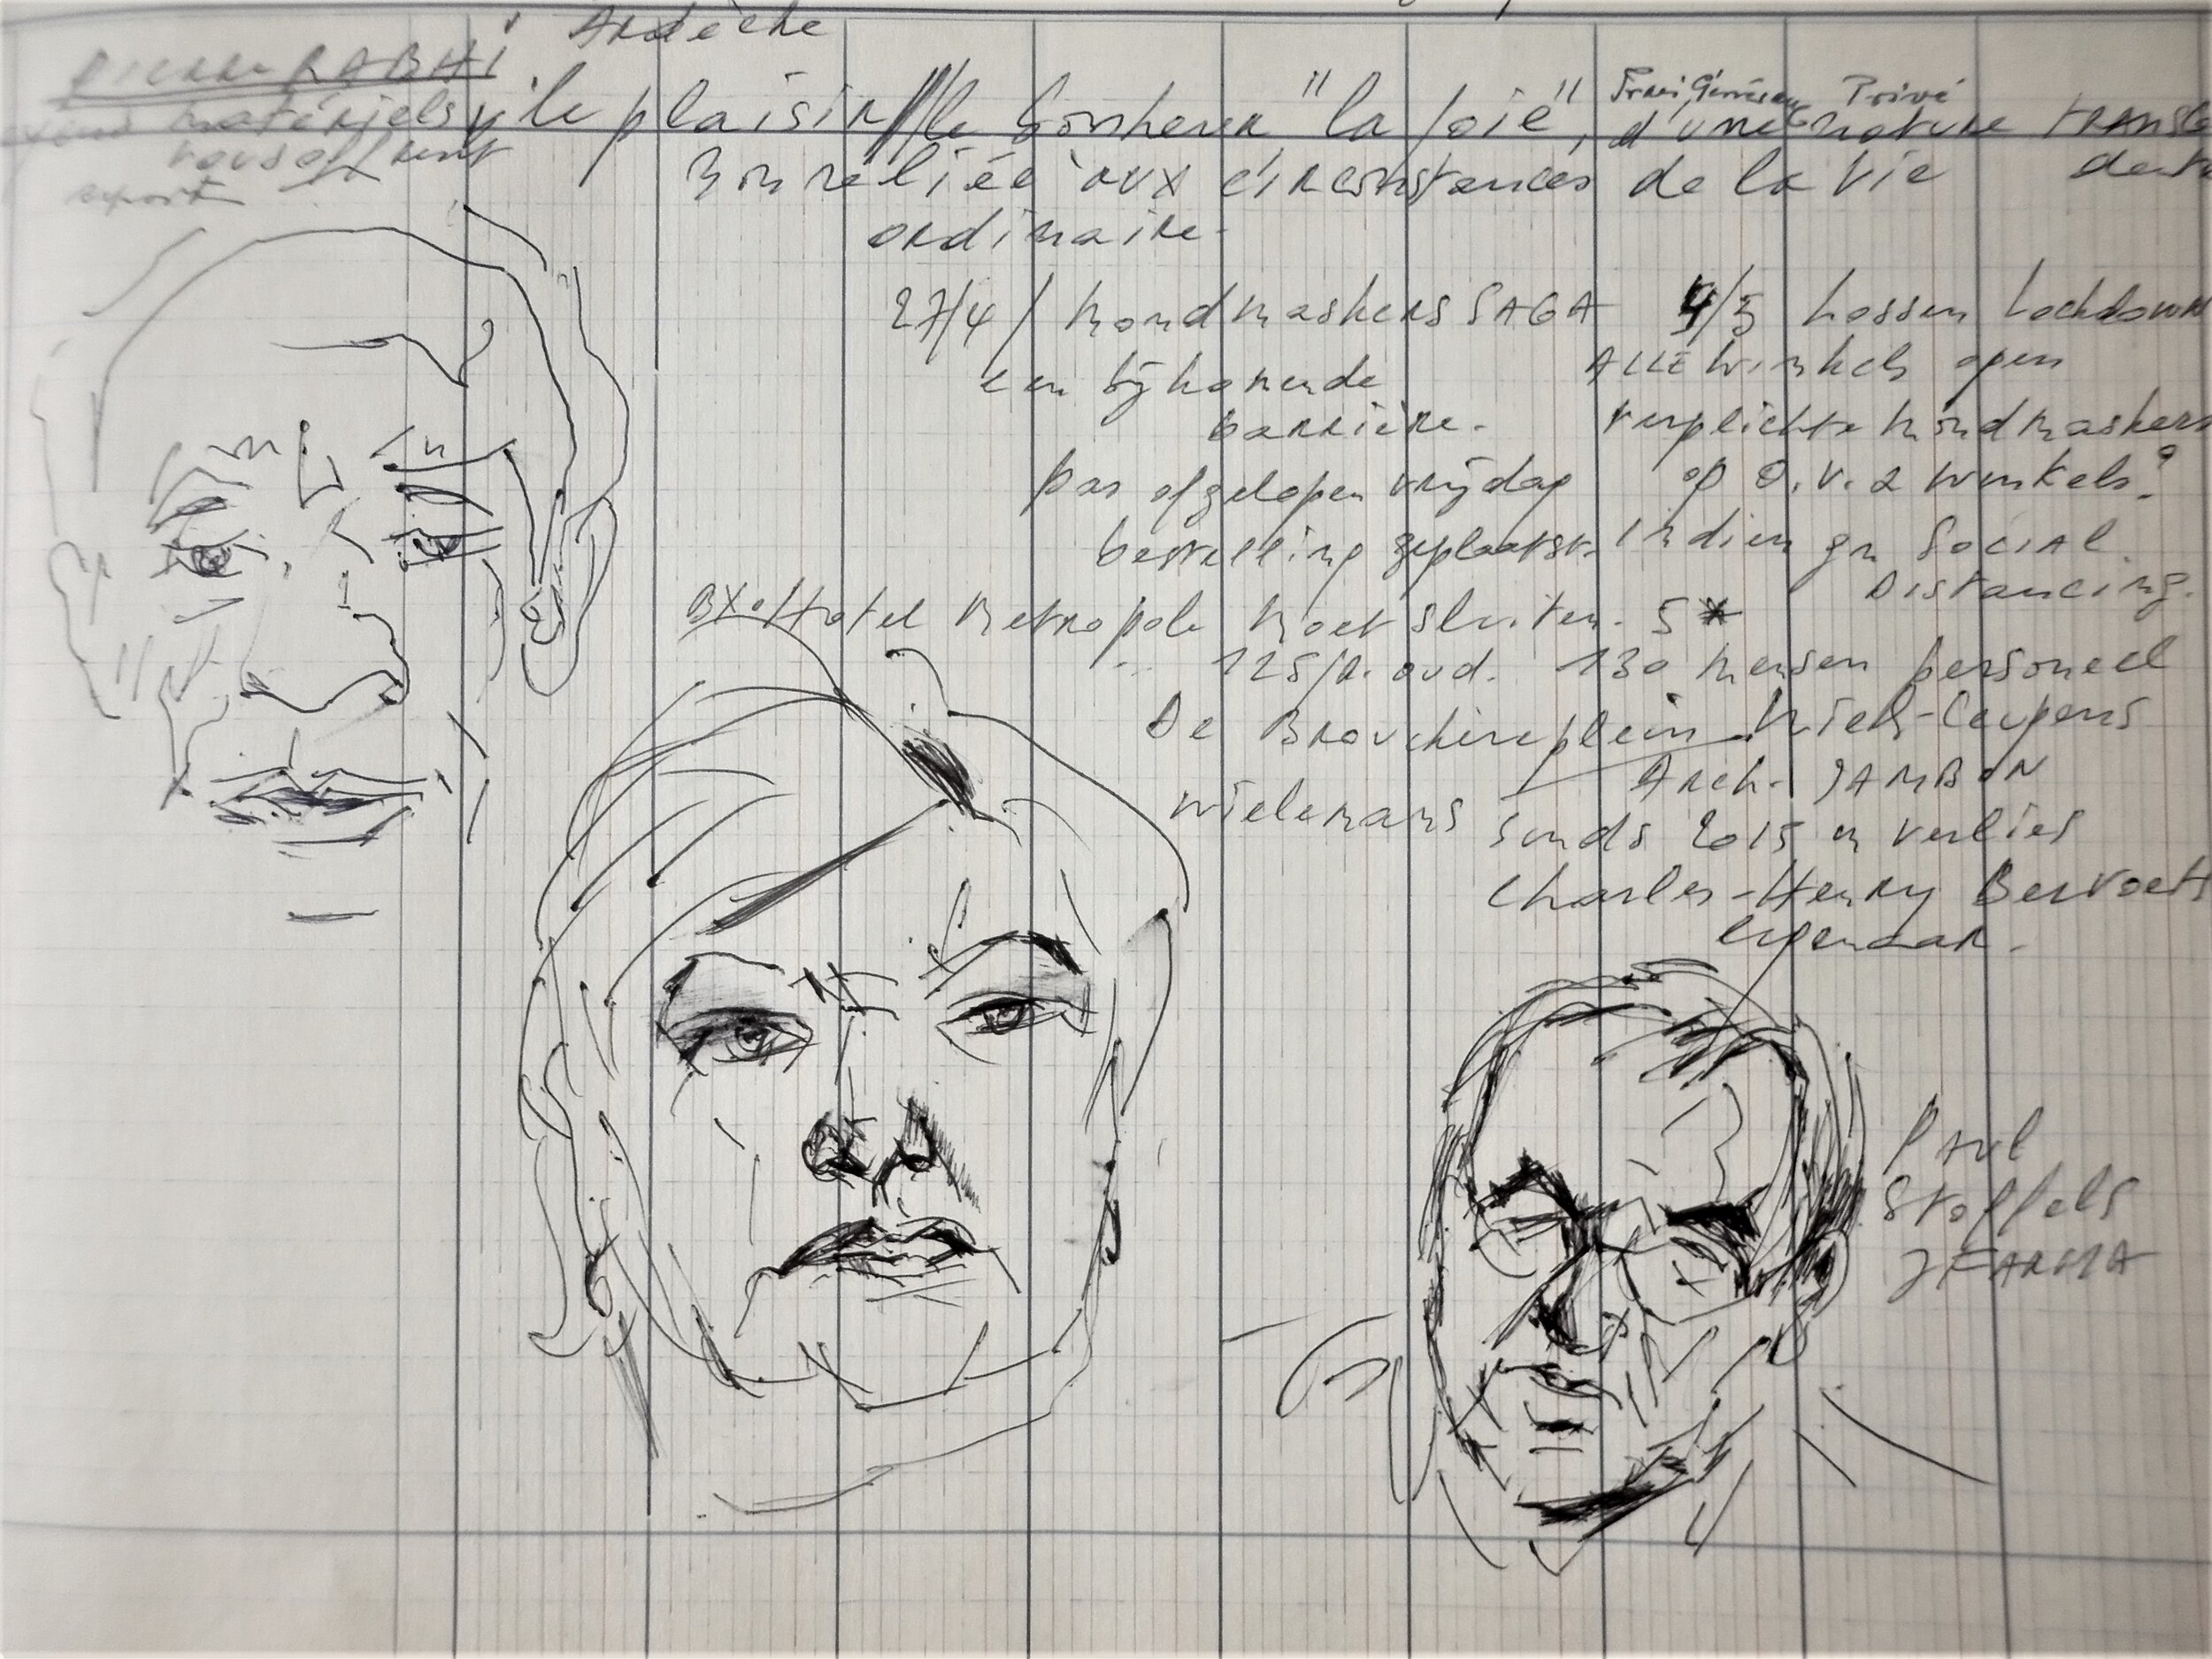 Ardèche
PIERRE RABHI
matériels
le plaisir // le bonheur "la joie", d'une nature
Privé
non réliée aux circonstances de la vie
ordinaire.
27/4 / mondmaskers SAGA
een bijkomende
barrière.
pas afgelopen vrijdag
bestelling geplaatst.
4/5 lossen lockdown
ALLE winkels open
verplichte mondmaskers
op O.V. & winkels?
indien gn SOCIAL
DIstancing.
BX° Hotel Metropole moet sluiten. 5*
125 jr. oud. 130 mensen personeel
De Brouckèreplein Wiels-Ceupens
Arch. JAMBON
Wielemans
sinds 2015 in verlies
Charles-Henry Bervoets
eigenaar.
PAUL
Stoffels